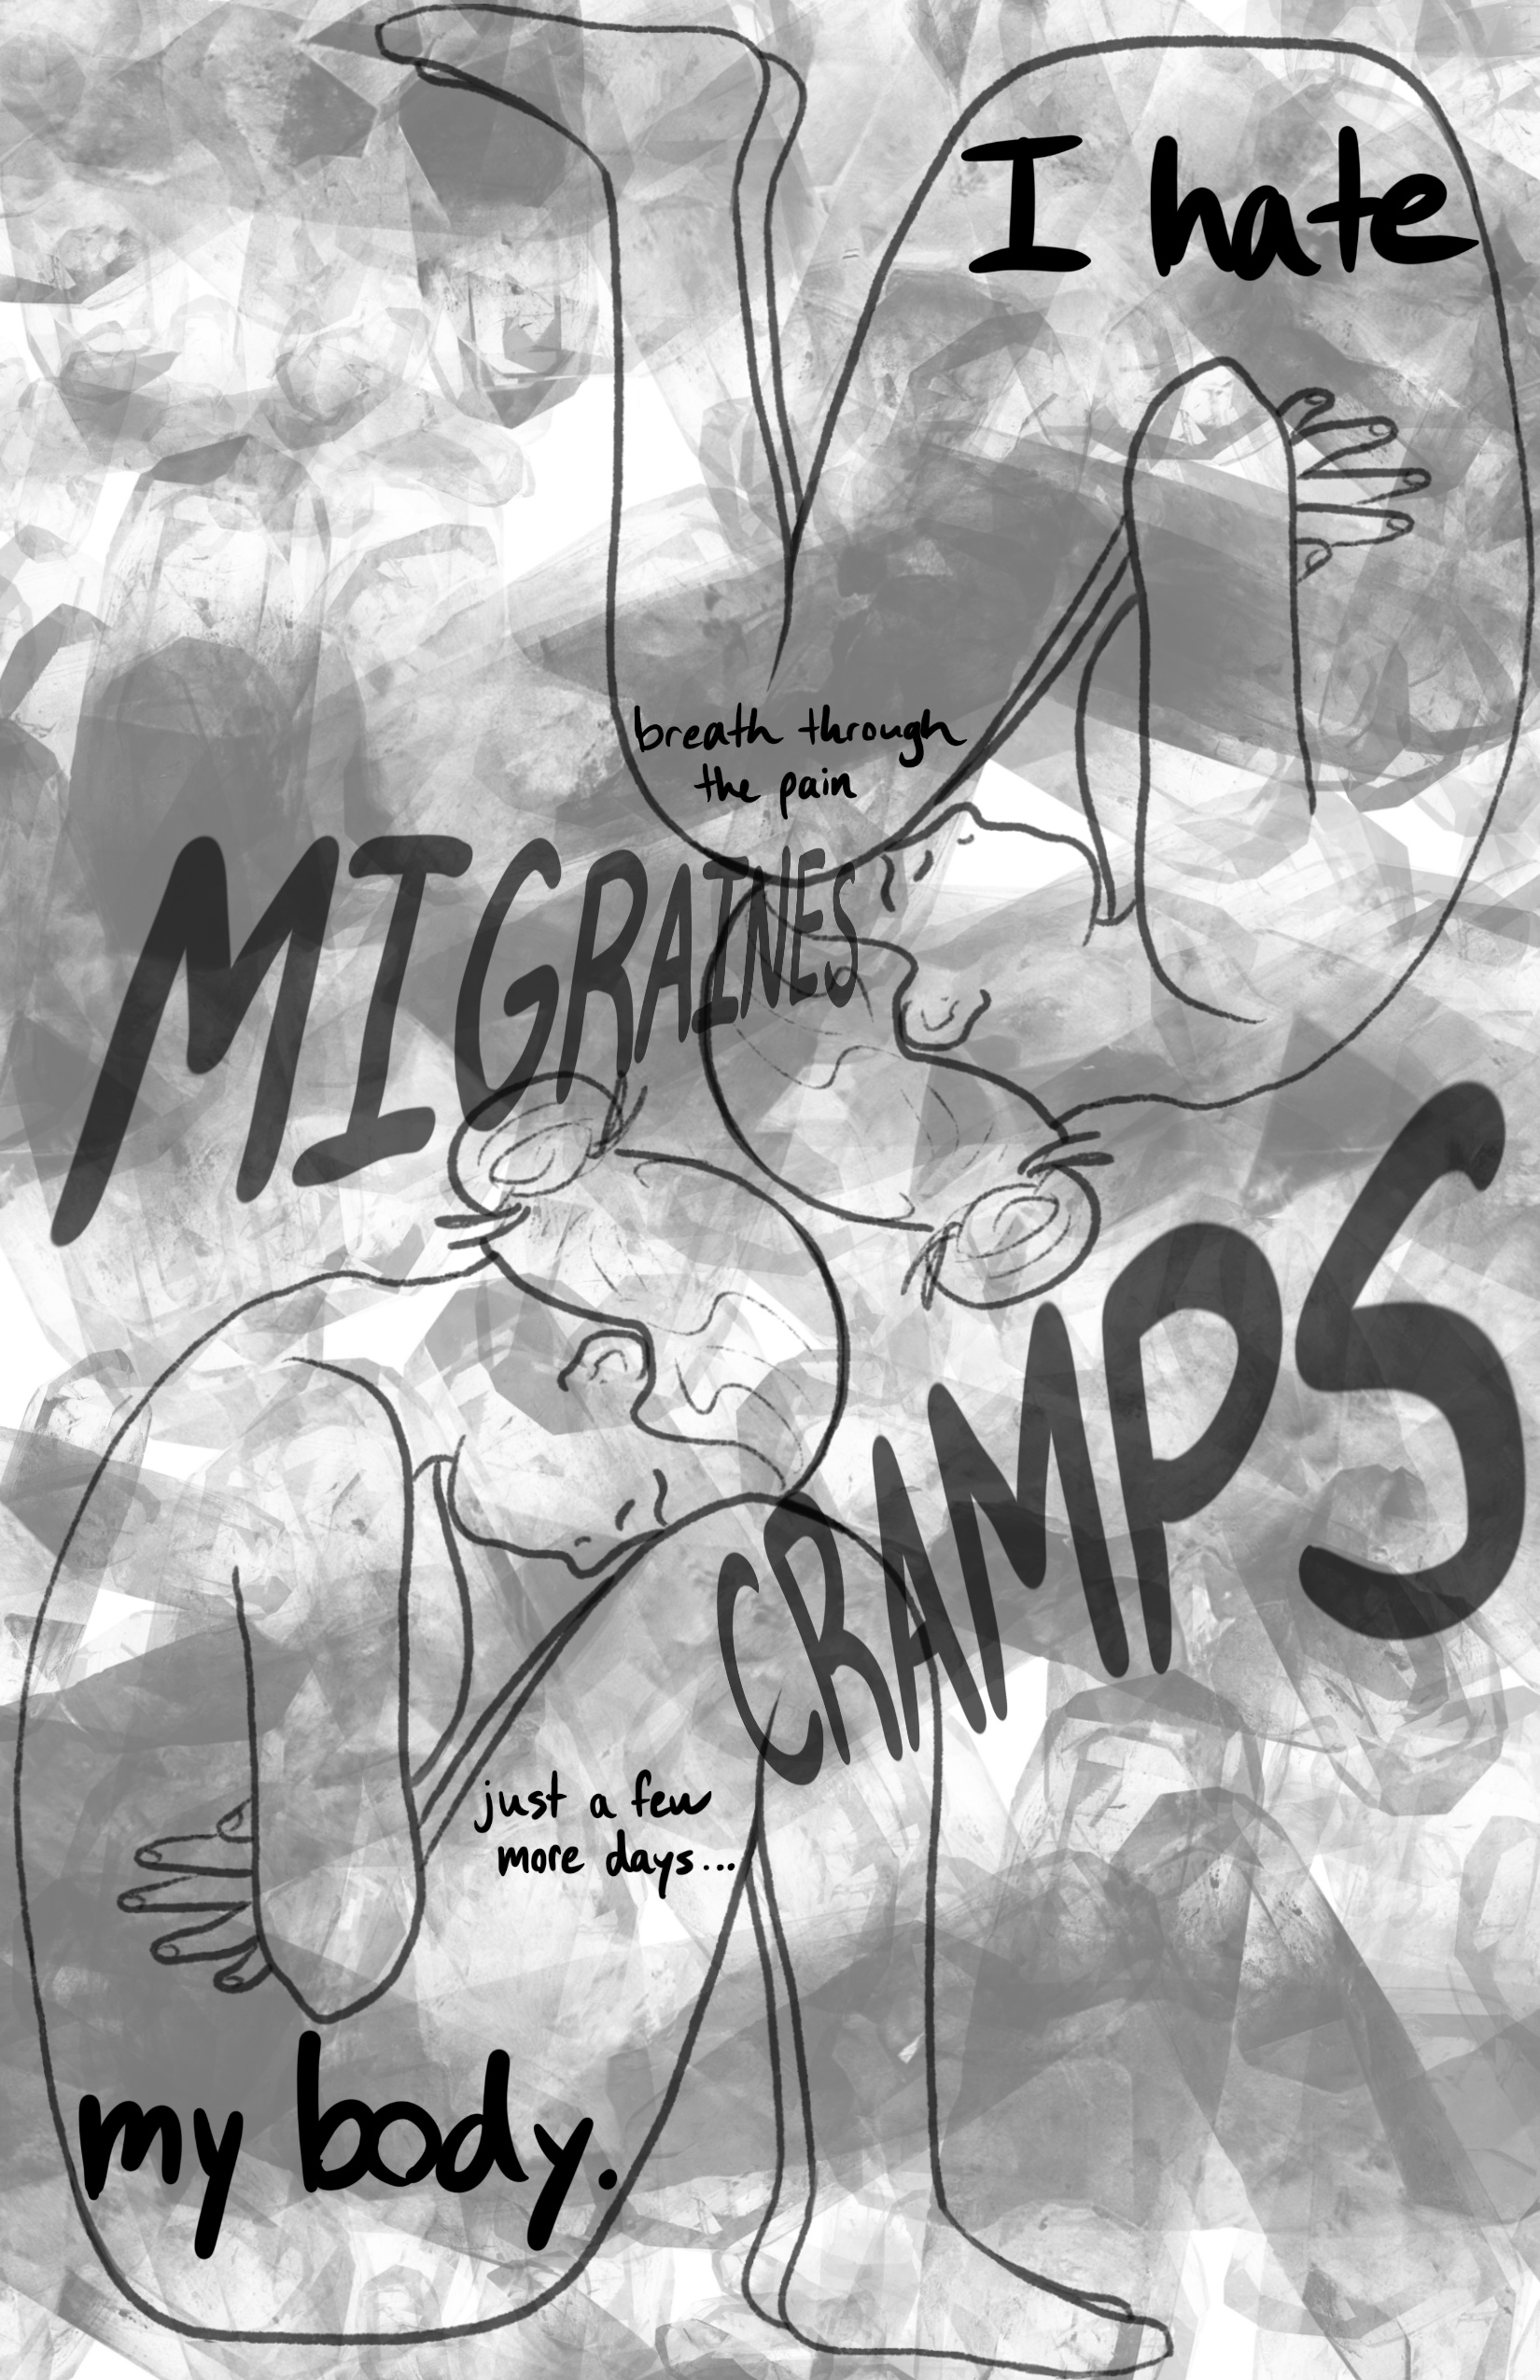 I hate
breath through
the pain
MIGRAINES
CRAMPS
just a few
more days...
my body.